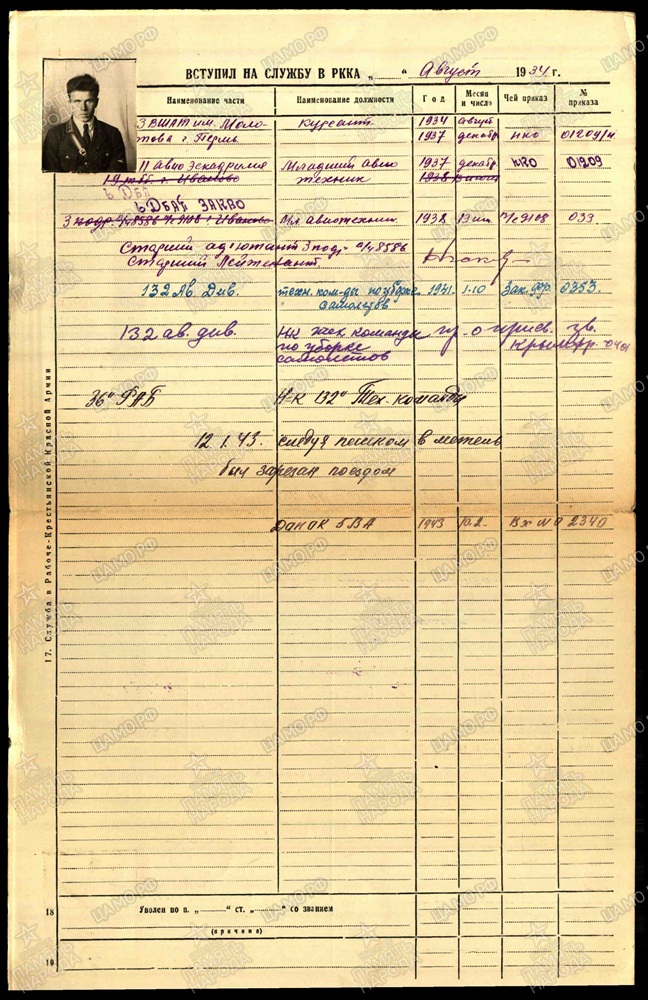 ВСТУПИЛ НА СЛУЖБУ В РККА „ “ Август 1934 г.
Наименование части Наименование должности Год Месяц и число Чей приказ № приказа
3 ВШАТ им. Моло- курсант 1934 август
това г. Пермь 1937 декабр НКО 01209/п
11 Авио эскадрилия Младший авио 1937 декабр НКО 01209
19 тбб г. Иваново техник 1938
6 ДБА
6 ДБАП ЗАКВО
3 подр. ч/8586 г. Иваново Мл авиотехник 1938 13 033
Старший адъютант 3 подр- ч/8586
Старший Лейтенант
132 Ав. Див. техн. ком-ды по уборке 1941. 1-10 Зак. фр. 0353.
самолетов
132 ав. див. НК тех команды пр. о присв. зв.
по уборке Крымфр.
самолетов
36й РАБ Н-К 132й Тех. команды
12.1.43. следуя пешком в метель
был зарезан поездом
Дан ОК 5 ВА 1943 10.2. Вх № 2340
17. Служба в Рабоче-Крестьянской Красной Армии
18 Уволен по п. „ “ ст. „ “ со званием
(причина)
19
ЦАМО.РФ
ПАМЯТЬ НАРОДА